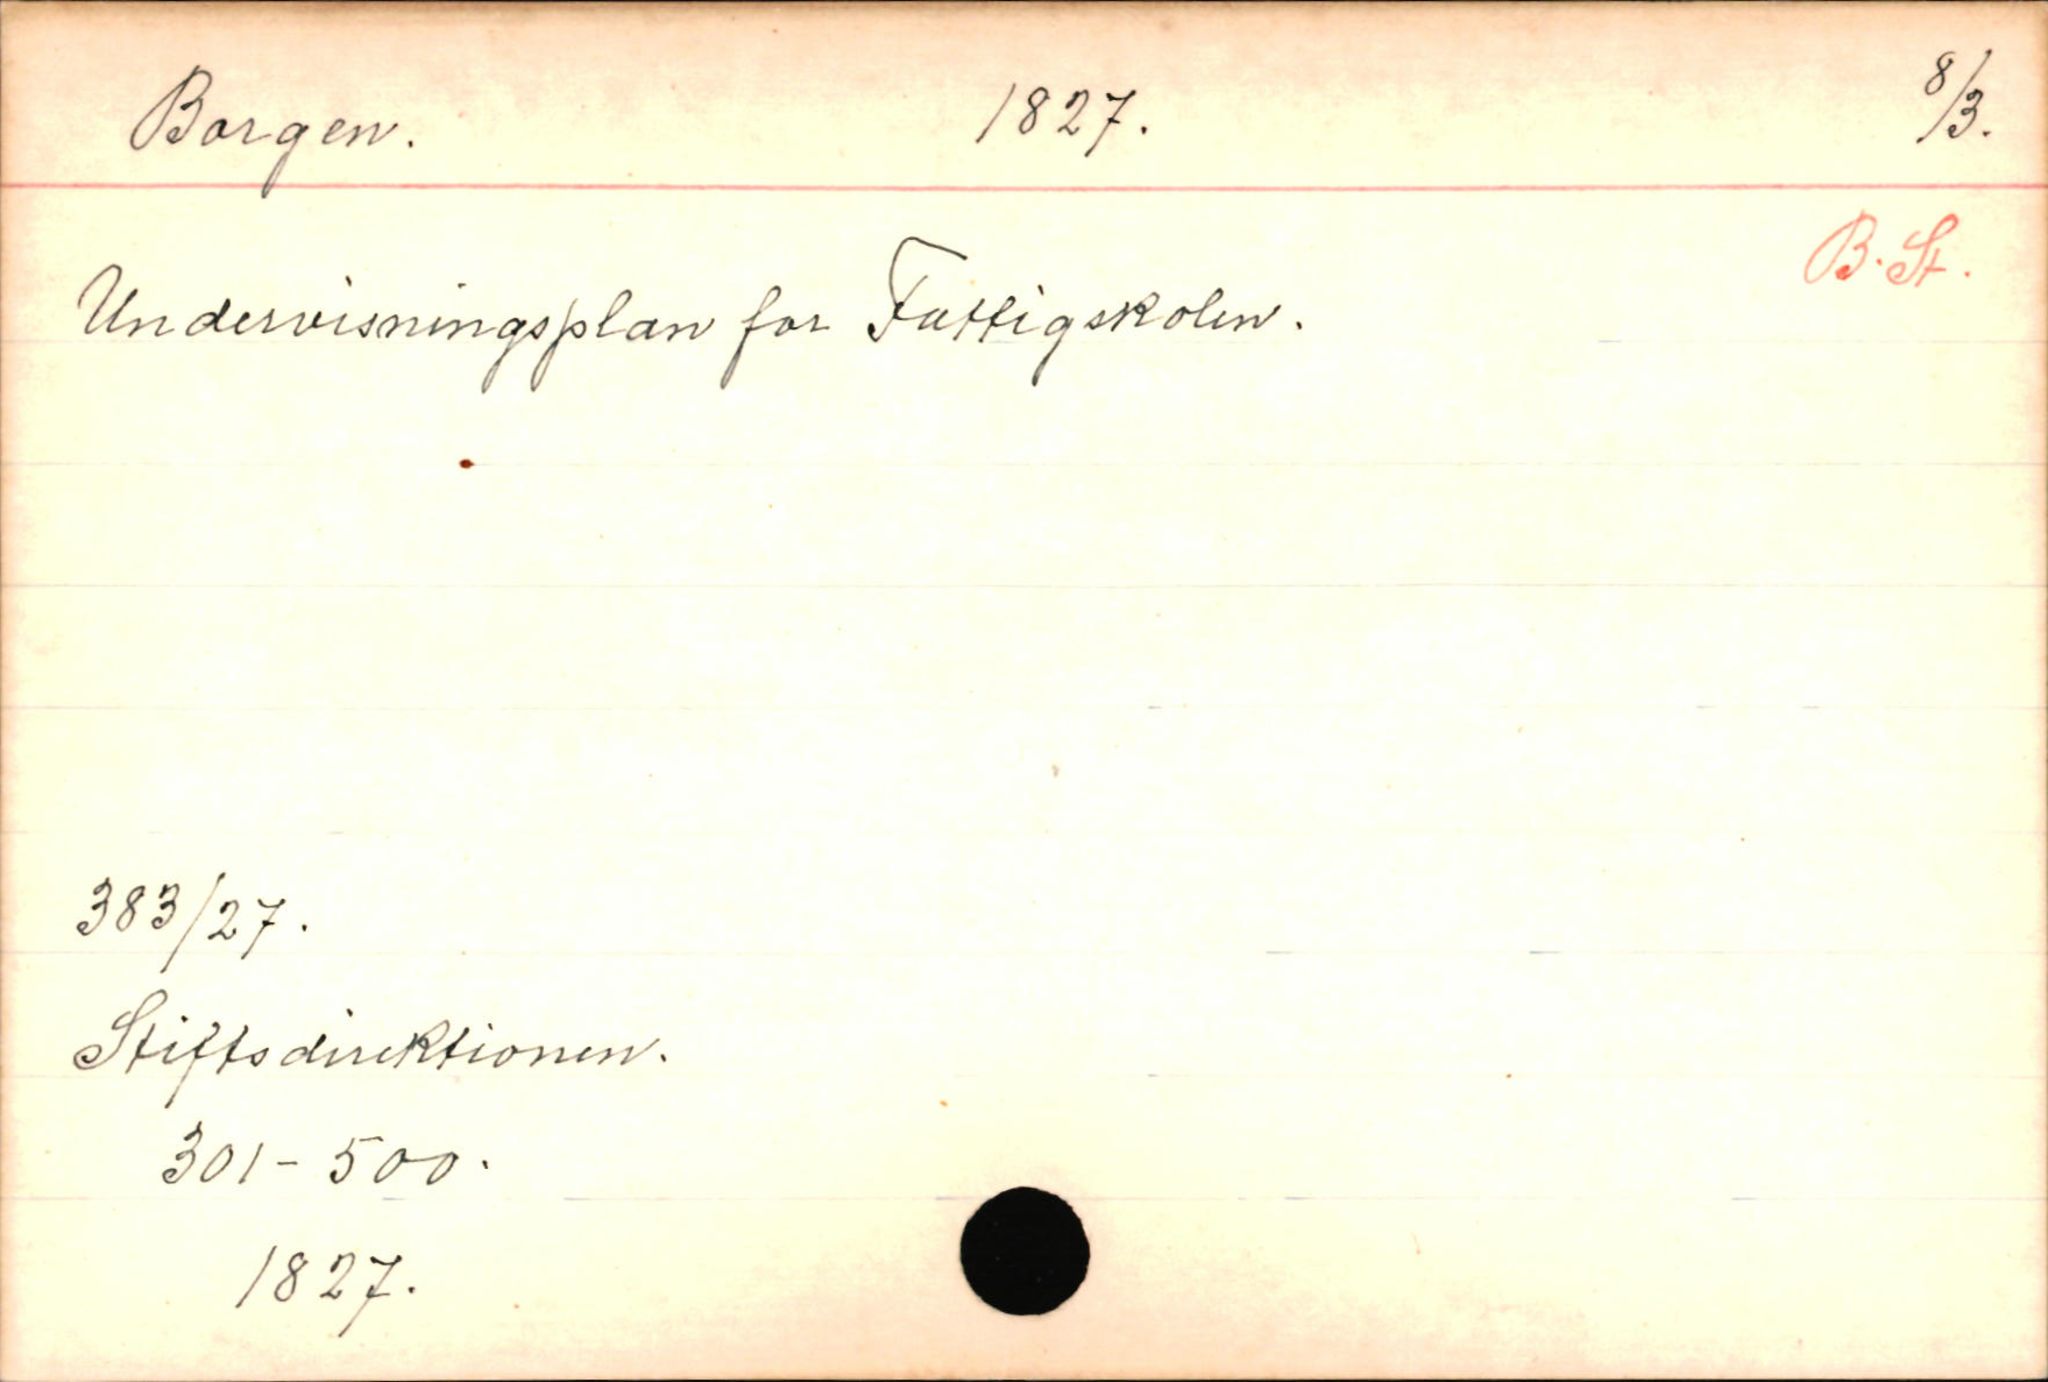 Borgen. 1827. 8/3.
B. St.
Undervisningsplan for Fattigskolen.
383/27.
Stiftsdirektionen.
301 - 500.
1827.